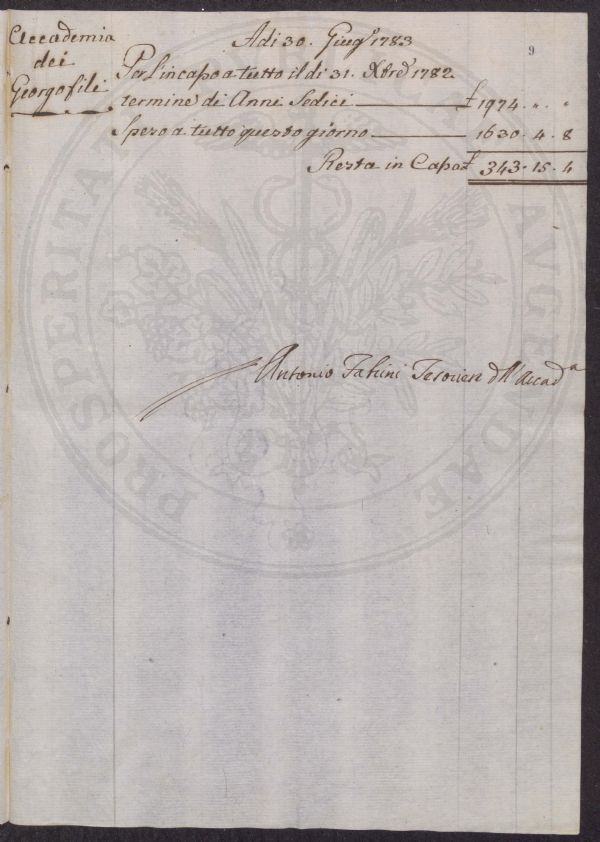 Accademia
dei
Georgofili
9
Adi 30. Giug.º 1783
Per l'incapo a tutto il di 31. Xbre 1782
termine di Anni Sedici £ 1974 " "
Speso a tutto questo giorno 1630. 4. 8
Resta in Capo £ 343. 15. 4
Antonio Tesoriere dell'Accad.ª
PROSPERITATI PUBLICAE AUGENDAE